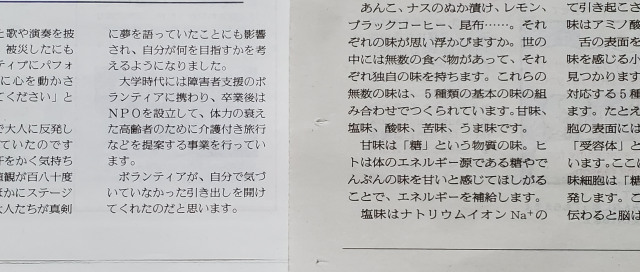 と歌や演奏を披
被災したにも
ティブにパフォ
に心を動かさ
てください」と
で大人に反発し
ていたのです
汗をかく気持ち
値観が百八十度
ほかにステージ
大人たちが真剣
に夢を語っていたことにも影響
され、自分が何を目指すかを考
えるようになりました。
大学時代には障害者支援のボ
ランティアに携わり、卒業後は
NPOを設立して、体力の衰え
た高齢者のために介護付き旅行
などを提案する事業を行ってい
ます。
ボランティアが、自分で気づ
いていなかった引き出しを開け
てくれたのだと思います。
あんこ、ナスのぬか漬け、レモン、
ブラックコーヒー、昆布……。それ
ぞれの味が思い浮かびますか。世の
中には無数の食べ物があって、それ
ぞれ独自の味を持ちます。これらの
無数の味は、5種類の基本の味の組
み合わせでつくられています。甘味、
塩味、酸味、苦味、うま味です。
甘味は「糖」という物質の味。ヒ
トは体のエネルギー源である糖やで
んぷんの味を甘いと感じてほしがる
ことで、エネルギーを補給します。
塩味はナトリウムイオンNa⁺の
て引き起こさ
味はアミノ酸
舌の表面を
味を感じる小
見つかります
対応する5種
ます。たとえ
胞の表面には
「受容体」と
います。ここに
味細胞は「糖
発します。こ
伝わると脳は